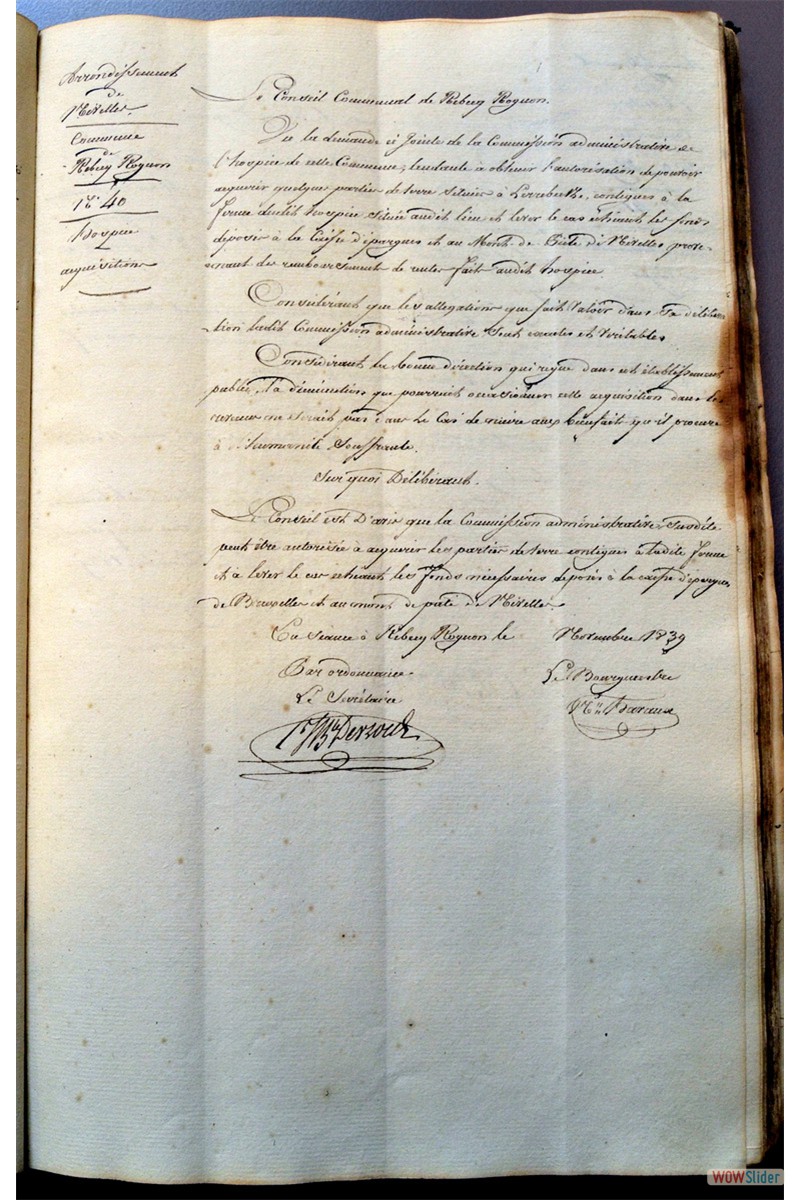 Arrondissement
de
Nivelles
Commune
de
Rebecq Rognon
N° 40
Hospice
acquisitions
Le Conseil Communal de Rebecq Rognon.
Vu la demande ci jointe de la Commission administrative de
l'hospice de cette Commune, tendante à obtenir l'autorisation de pouvoir
acquerir quelque parties de terre situées à contigues à la
ferme dudit hospice située audit lieu et lever le cas échéant les fonds
déposés à la Caisse d'épargnes et au Mont de Piété de Nivelles prove-
-nant de remboursements de rentes fait audit hospice.
Considérant que les allegations que fait valoir dans sa délibéra
tion ladite Commission administrative sont exactes et veritables
Considérant la bonne direction qui règne dans cet établissement
public, la diminution que pourrait occasionner cette acquisition dans les
revenus ne serait pas dans le cas de nuire aux bienfaits qu'il procure
à l'humanité souffrante.
Sur quoi Délibérant.
Le Conseil est D'avis que la Commission administrative susdite
peut être autorisée à acquerir les parties de terre contigues à ladite ferme
et à lever le cas échéant les fonds nécessaires déposés à la caisse d'épargnes
de Bruxelles et au mont de piété de Nivelles
En séance à Rebecq Rognon le Novembre 1839
Par ordonnance
Le Bourguemestre
Le Secrétaire